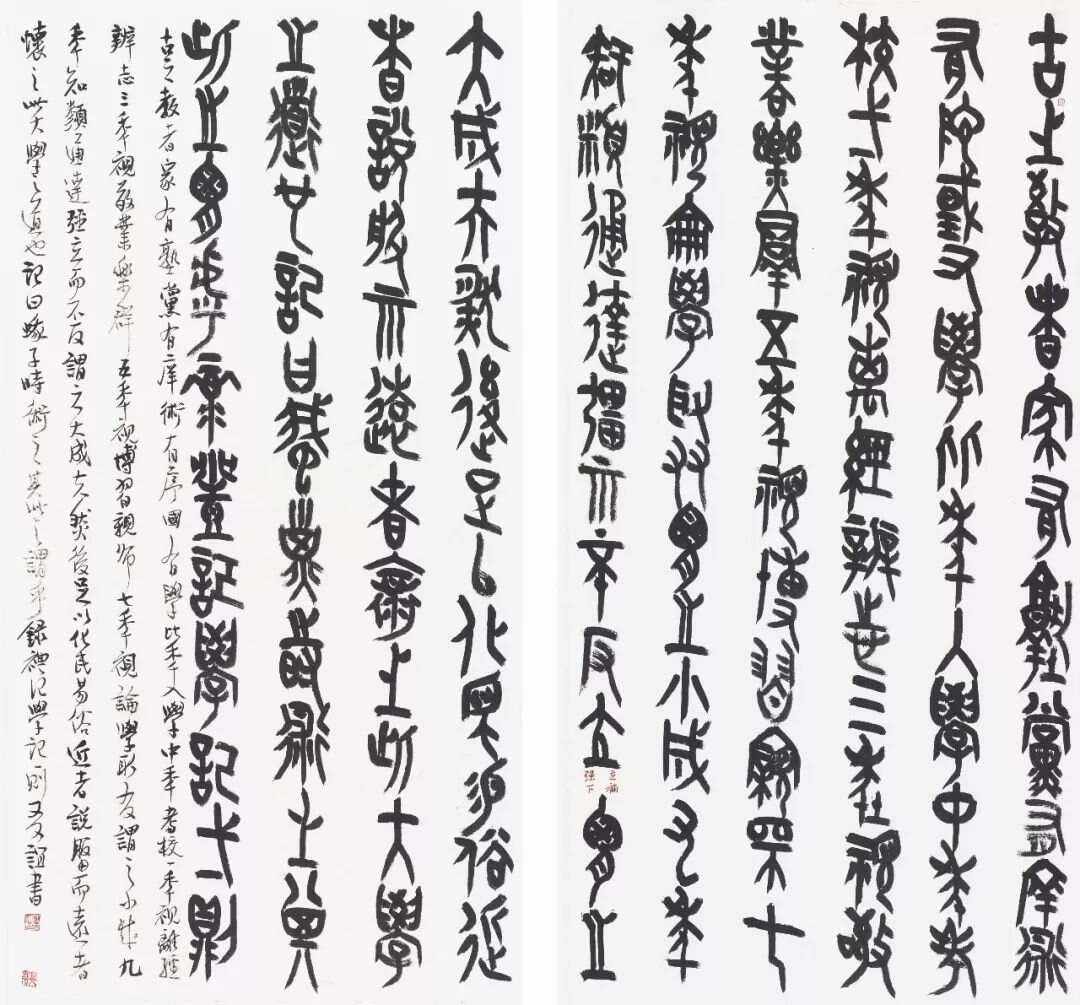 古之教者家有塾黨有庠術
有序國有學比年入學中年考
校一年視離經辨志三年視敬
業樂羣五年視博習親師七
年視論學取友謂之小成九年
知類通達彊而不反立謂之
立補
強下
大成夫然後足以化民易俗近
者說服而遠者懷之此大學
之道也記曰蛾子時術之其
此之謂乎录禮記學記一則
古之教者家有塾黨有庠術有序國有學比年入學中年考校一年視離經
辨志三年視敬業樂群五年視博習親師七年視論學取友謂之小成九
年知類通達強立而不反謂之大成夫然後足以化民易俗近者說服而遠者
懷之此大學之道也記曰蛾子時術之其此之謂乎錄禮記學記一則誼書